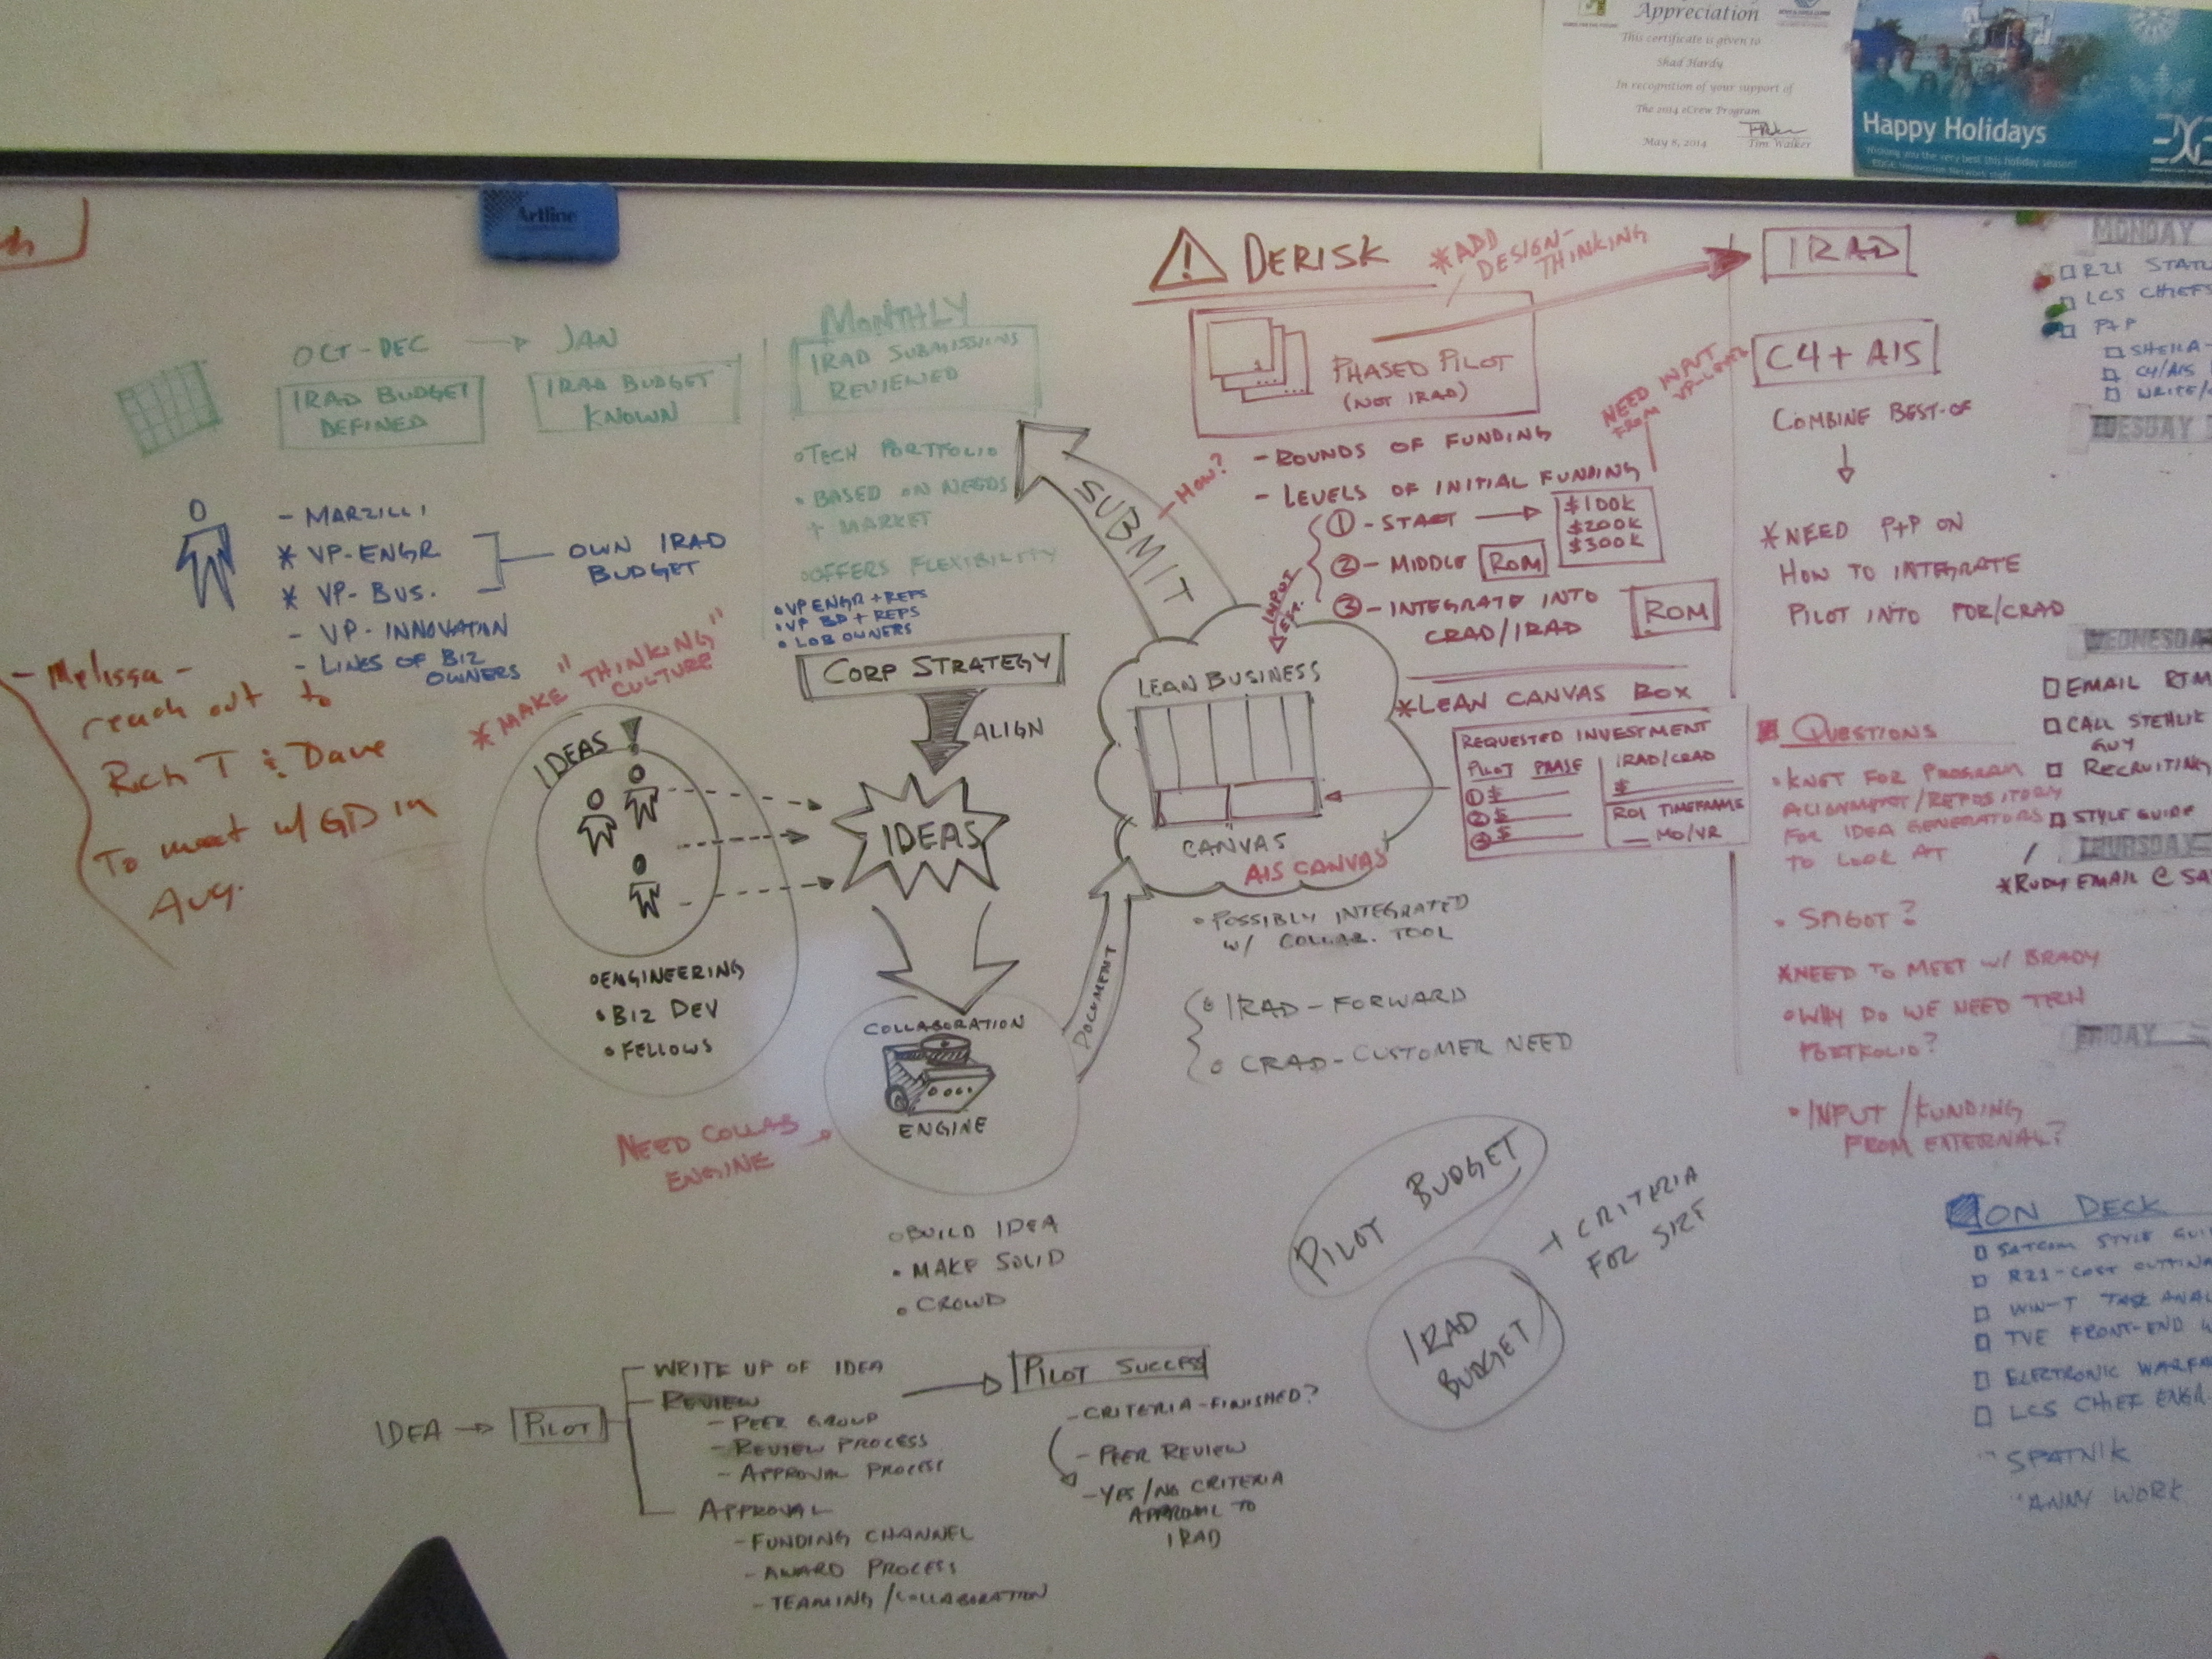 Appreciation
This certificate is given to
Shad Hardy
In recognition of your support of
The 2014 eCrew Program
May 8, 2014
Tim Walker
Happy Holidays
Wishing you the very best this holiday season!
EDGE Innovation Network staff
Artline
OCT-DEC → JAN
IRAD BUDGET
DEFINED
IRAD BUDGET
KNOWN
MONTHLY
IRAD SUBMISSIONS
REVIEWED
• TECH PORTFOLIO
• BASED ON NEEDS
+ MARKET
• OFFERS FLEXIBILITY
• VP ENGR + REPS
• VP BD + REPS
• LOB OWNERS
- MARZILLI
* VP-ENGR
* VP-BUS.
- VP-INNOVATION
- LINES OF BIZ
OWNERS
OWN IRAD
BUDGET
- Melissa -
reach out to
Rich T & Dave
To meet w/ GD in
Aug.
* MAKE "THINKING"
CULTURE
IDEAS!
• ENGINEERING
• BIZ DEV
• FELLOWS
CORP STRATEGY
ALIGN
IDEAS
COLLABORATION
ENGINE
NEED COLLAB
ENGINE
• BUILD IDEA
• MAKE SOLID
• CROWD
DOCUMENT
SUBMIT
LEAN BUSINESS
CANVAS
AIS CANVAS
• POSSIBLY INTEGRATED
W/ COLLAB. TOOL
• IRAD-FORWARD
• CRAD-CUSTOMER NEED
! DERISK
* ADD
DESIGN-
THINKING
PHASED PILOT
(NOT IRAD)
- HOW?
- ROUNDS OF FUNDING
- LEVELS OF INITIAL FUNDING
NEED INPUT
FROM VP-LEVEL
① - START → $100K
$200K
$300K
② - MIDDLE ROM
③ - INTEGRATE INTO
CRAD/IRAD
ROM
INPUT
* LEAN CANVAS BOX
REQUESTED INVESTMENT
PILOT PHASE
① $
② $
③ $
IRAD/CRAD
$
ROI TIMEFRAME
MO/YR
IRAD
C4 + AIS
COMBINE BEST-OF
* NEED P+P ON
HOW TO INTEGRATE
PILOT INTO POR/CRAD
QUESTIONS
• KNET FOR PROGRAM
ALIGNMENT/REPOSITORY
FOR IDEA GENERATORS
TO LOOK AT
• SPIGOT?
* NEED TO MEET W/ BRADY
• WHY DO WE NEED TECH
PORTFOLIO?
• INPUT/FUNDING
FROM EXTERNAL?
MONDAY
R21
LCS CHIEFS
P+P
SHEILA-
C4/AIS
TUESDAY
WEDNESDAY
EMAIL
CALL STEHLIK
GUY
RECRUITING
STYLE GUIDE
THURSDAY
* RUDY EMAIL @
FRIDAY
ON DECK
SATCOM STYLE
R21-COST CUTTING
WIN-T TASK
TVE FRONT-END
ELECTRONIC
LCS CHIEF ENGR
SPATNIK
PILOT BUDGET
IRAD
BUDGET
→ CRITERIA
FOR SIZE
IDEA → PILOT
- WRITE UP OF IDEA
- REVIEW
- PEER GROUP
- REVIEW PROCESS
- APPROVAL PROCESS
APPROVAL
- FUNDING CHANNEL
- AWARD PROCESS
- TEAMING/COLLABORATION
→ PILOT SUCCESS
- CRITERIA-FINISHED?
- PEER REVIEW
- YES/NO CRITERIA
APPROVAL TO
IRAD